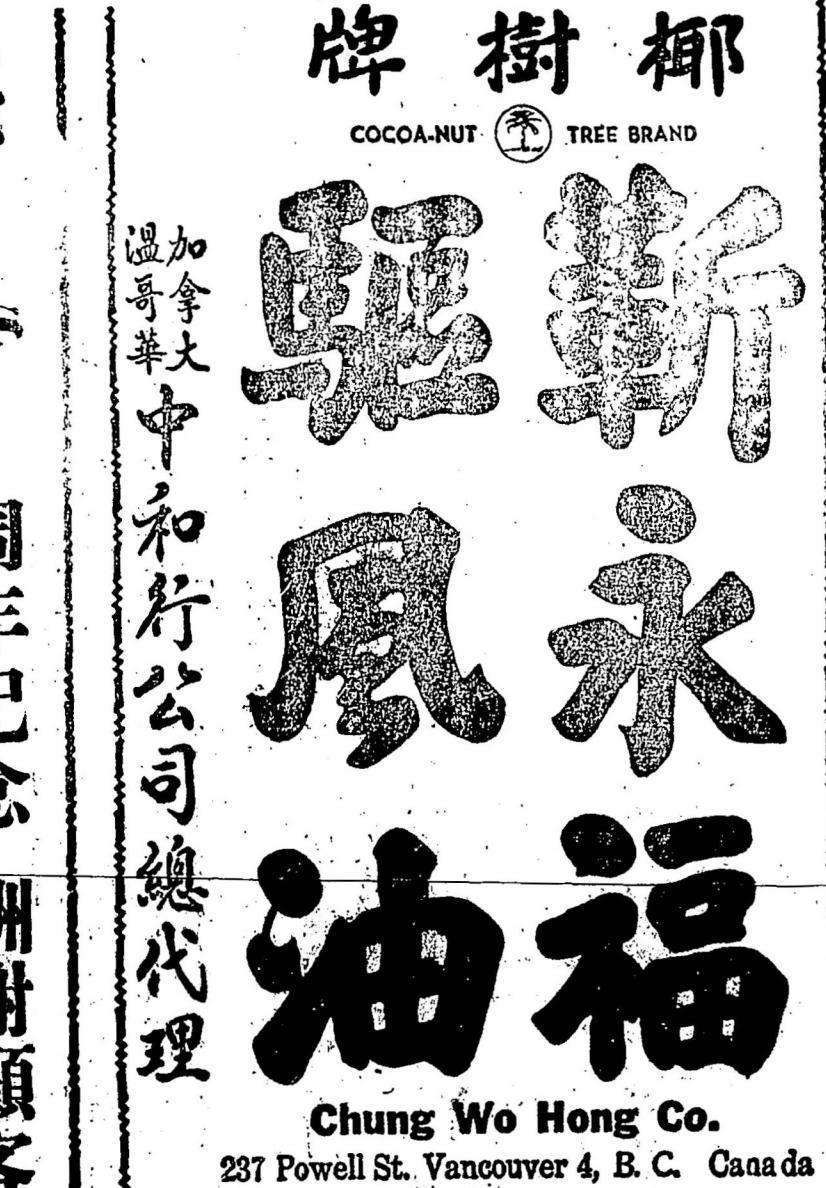 椰樹牌
COCOA-NUT TREE BRAND
靳永福
驅風油
加拿大
溫哥華
中和行公司總代理
Chung Wo Hong Co.
237 Powell St. Vancouver 4, B. C. Canada
周年紀念 酬謝顧客